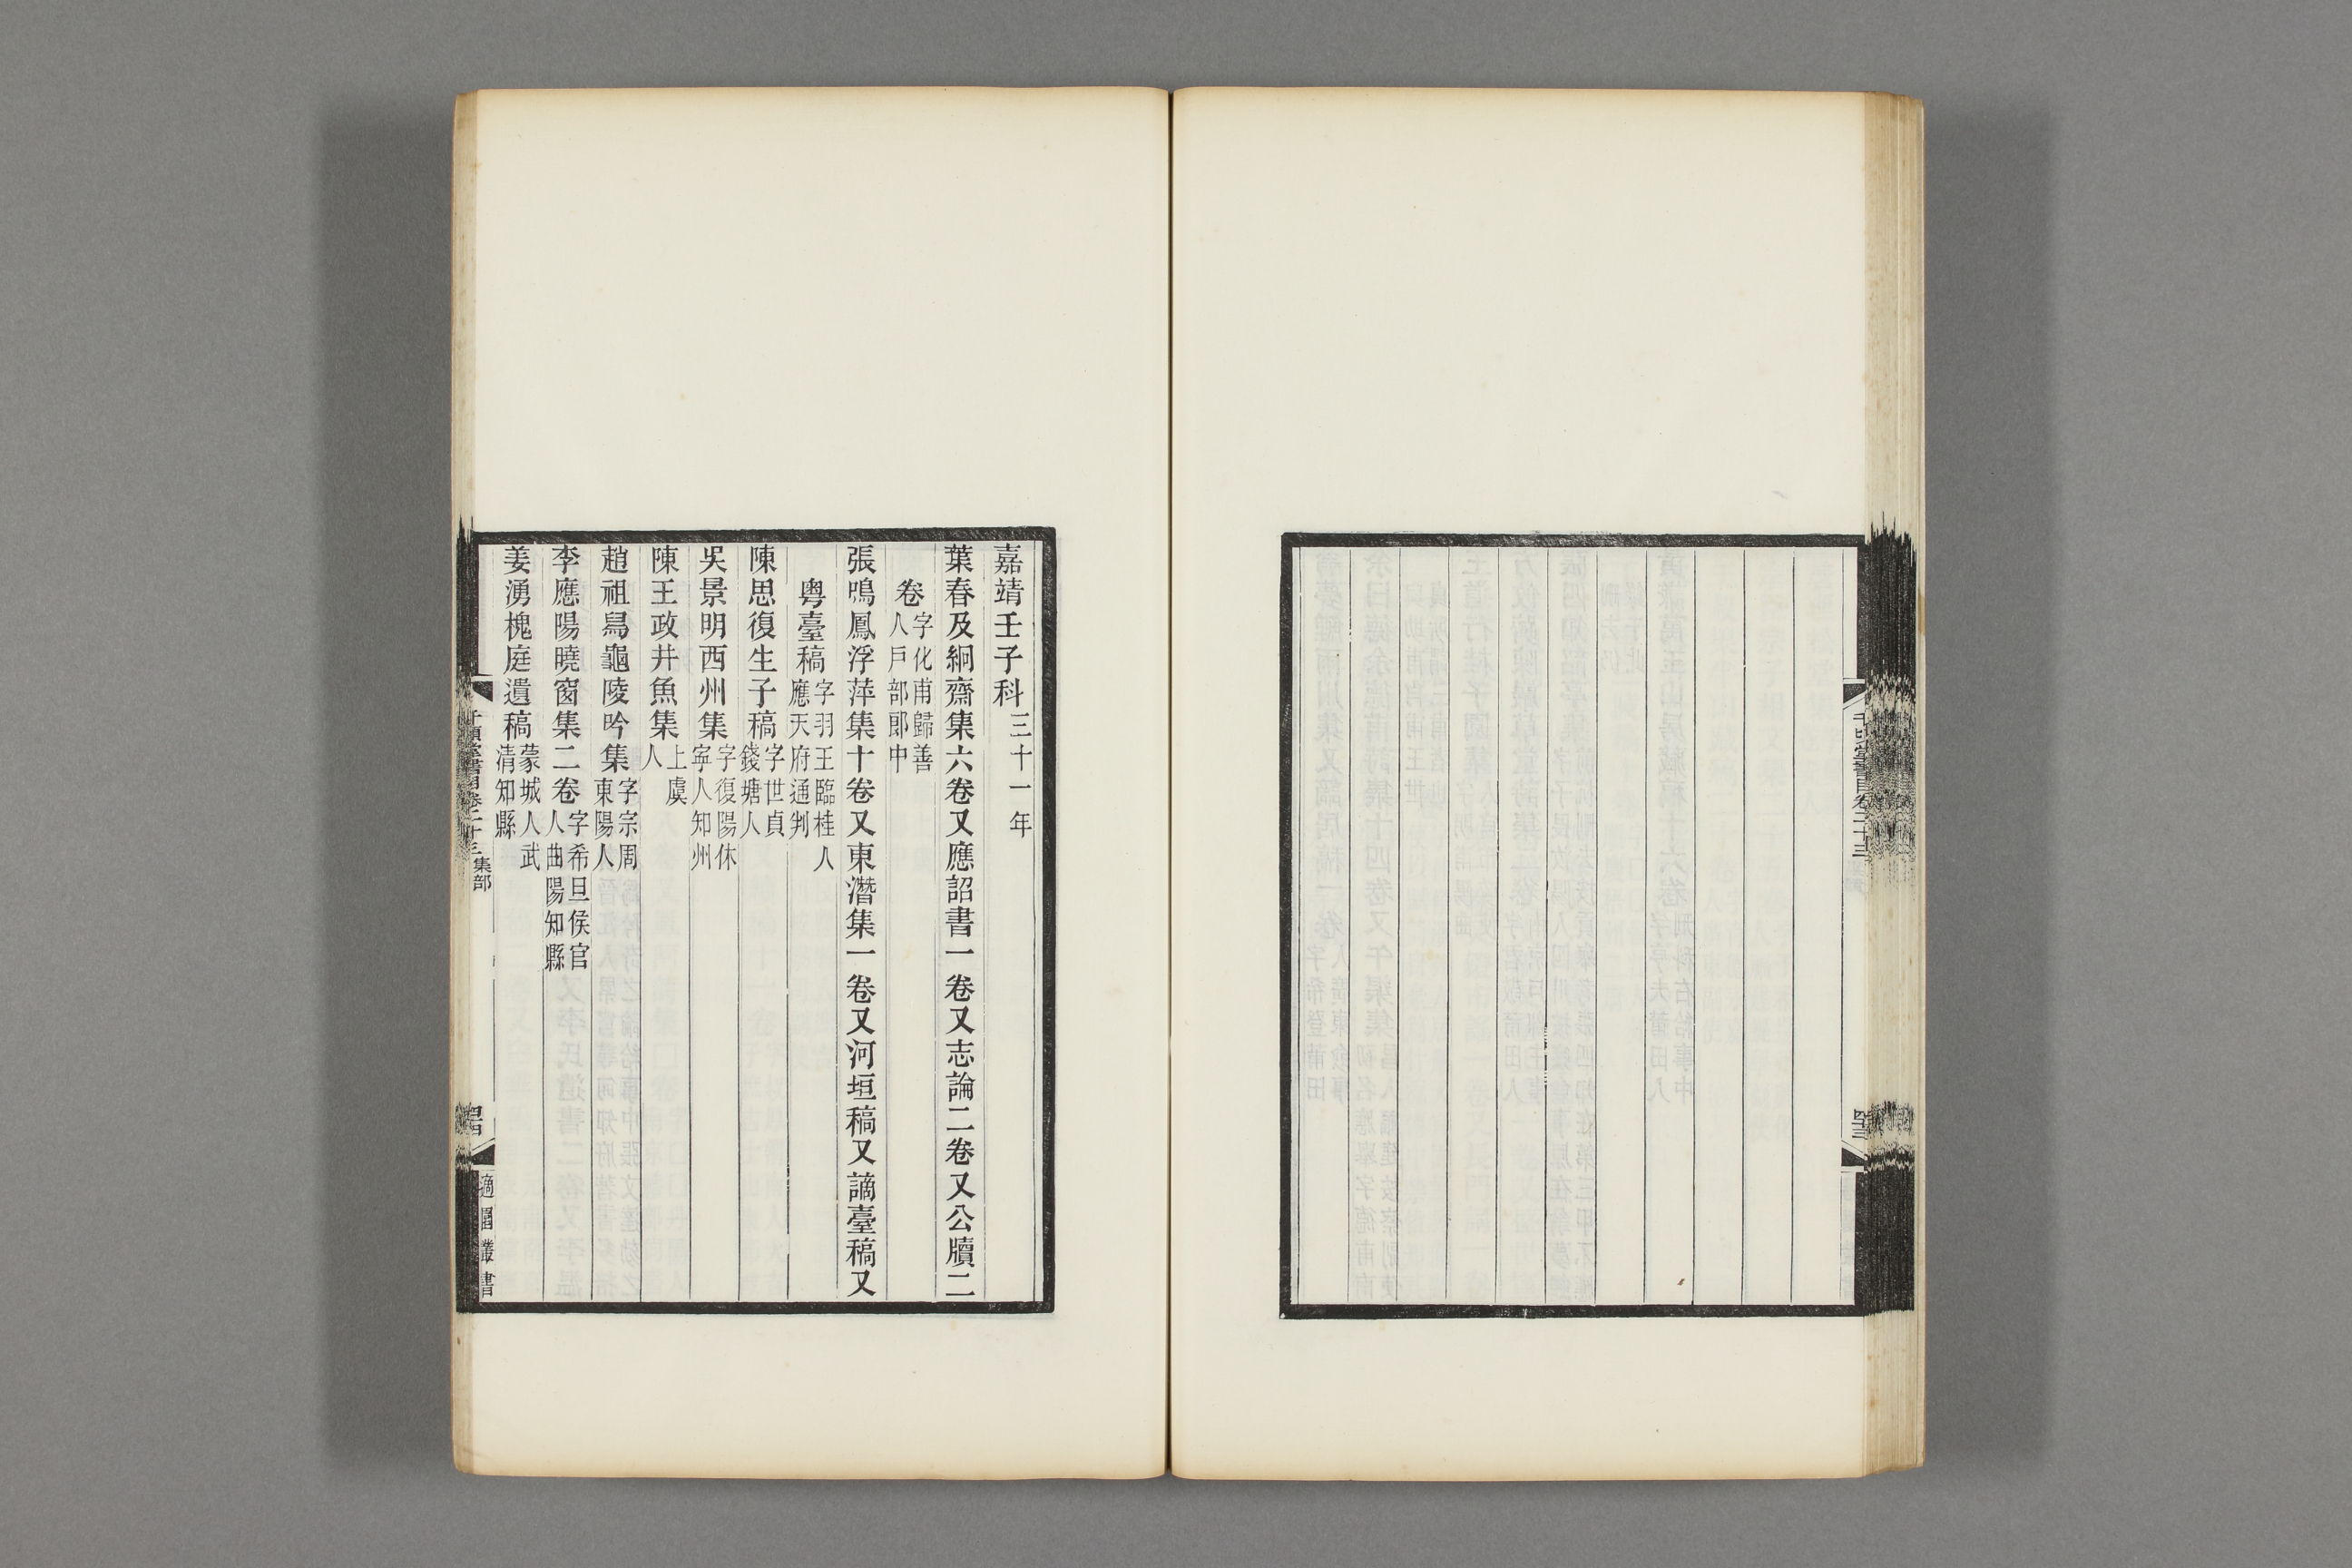 嘉靖壬子科三十一年
葉春及絅齋集六卷又應詔書一卷又志論二卷又公牘二
卷字化甫歸善
人戶部郎中
張鳴鳳浮萍集十卷又東潛集一卷又河垣稿又謫臺稿又
粵臺稿字羽王臨桂人
應天府通判
陳思復生子稿字世貞
錢塘人
吳景明西州集字復陽休
寧人知州
陳王政井魚集上虞
人
趙祖舄龜陵吟集字宗周
東陽人
李應陽曉窗集二卷字希旦侯官
人曲陽知縣
姜湧槐庭遺稿蒙城人武
清知縣
千頃堂書目卷二十三集部
四
適園叢書